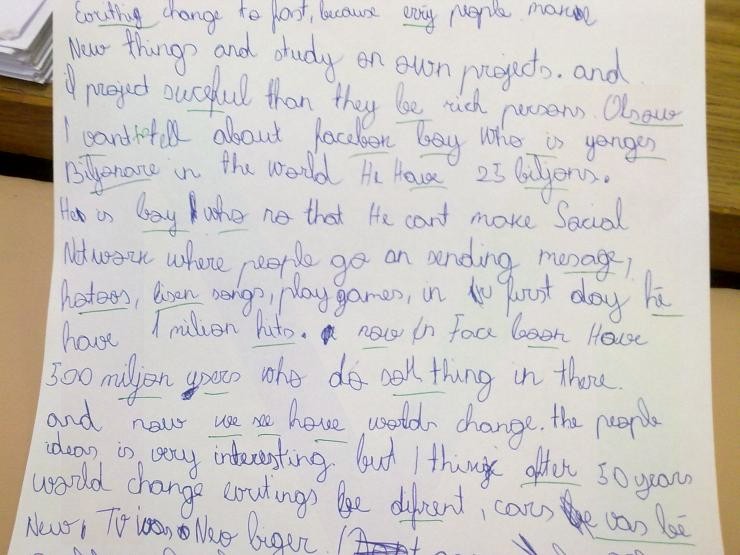 Evrithig change to fast, because evry people make
New things and study on own projects. and
if project sucesful than they be rich persons. Olsow
I vant to tell about facebook boy who is yonges
Biljonare in the world He Have 25 biljons.
He is boy who no that He cant make Social
Network where people go an sending mesage,
hotoos, lisen songs, play games, in first day he
have 1 milion hits. now in Face book Have
500 miljon users who do thing in there.
and now we see how world change. the people
ideas is very interesting. but I think after 50 years
world change evrtings be difrent, cars be
New, TV Neo biger.